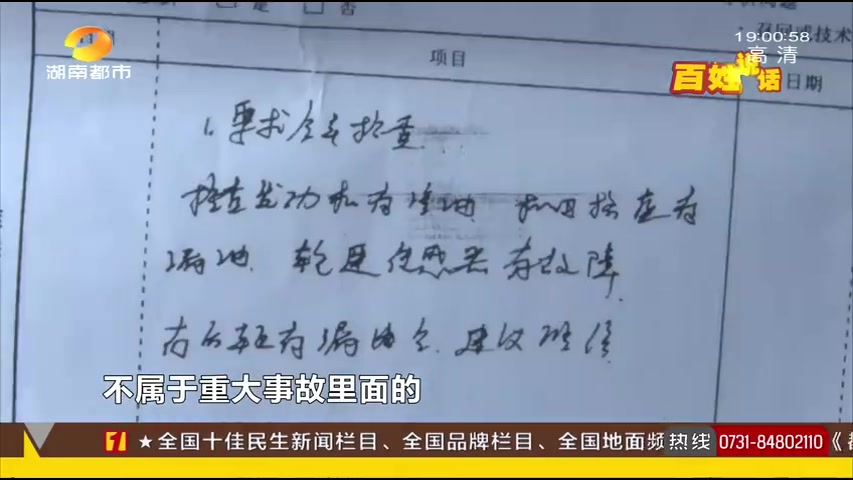 是 否
召回或技术
19:00:58
高清
湖南都市
日期
项目
百姓说话
日期
1、要求全车检查
检查发动机有渗油 机油 有
漏油 轮速传感器有故障
右后 有漏油 建议 修
不属于重大事故里面的
★全国十佳民生新闻栏目、全国品牌栏目、全国地面频
热线
0731-84802110
《都